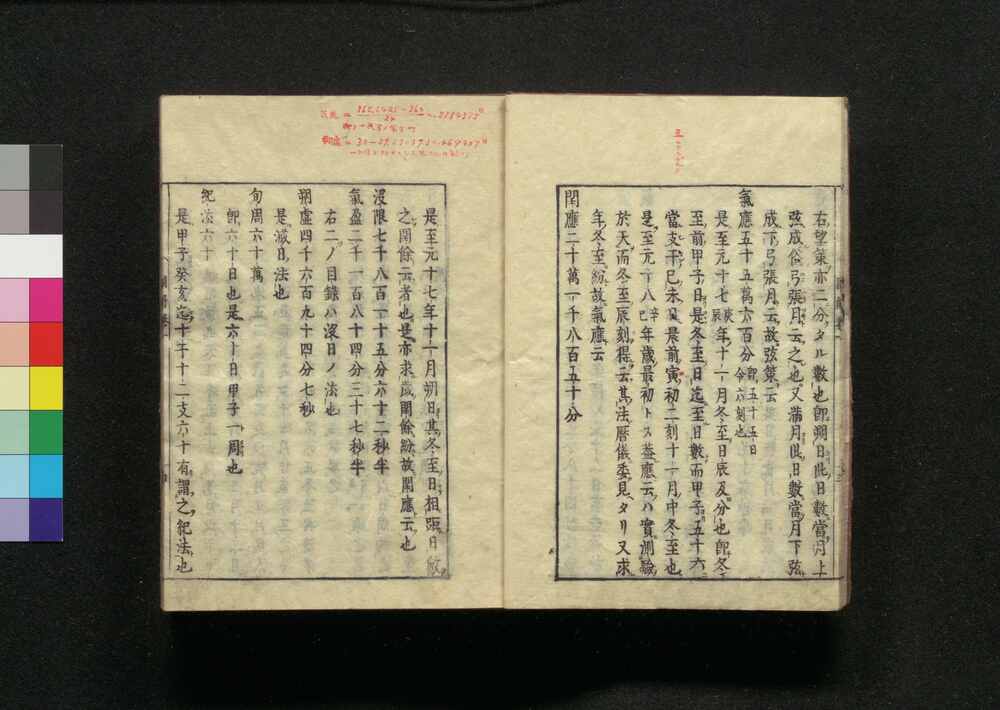 右望策亦二分タル數也卽朔日此日數當月上
弦成俗弓張月云之也又滿月此日數當月下弦
成下弓張月云故弦策云
氣應五十五萬六百分 卽五十五日令六刻也
是至元十七庚辰年十一月冬至日辰及分也卽冬
至前甲子日是冬至日迄至日數而甲子五十六
當支干己未日晨前寅初二刻十一月中冬至也
是至元十八辛巳年年歲最初トス蓋應云ハ實測驗
於天而冬至辰刻得云其法曆儀委見タリ又求
年冬至紛故氣應云
閏應二十萬一千八百五十分
是至元十七年十一月朔日其冬至日相距日
之閏餘云者也是亦求歲閏餘紛故閏應云也
沒限七千八百一十五分六十二秒半
氣盈二千一百八十四分三十七秒半
右二ノ目錄ハ沒日ノ法也
朔虛四千六百九十四分七秒
是滅日法也
旬周六十萬
卽六十日也是六十日甲子一周也
紀法六十
是甲子癸亥迄十干十二支六十有謂之紀法也